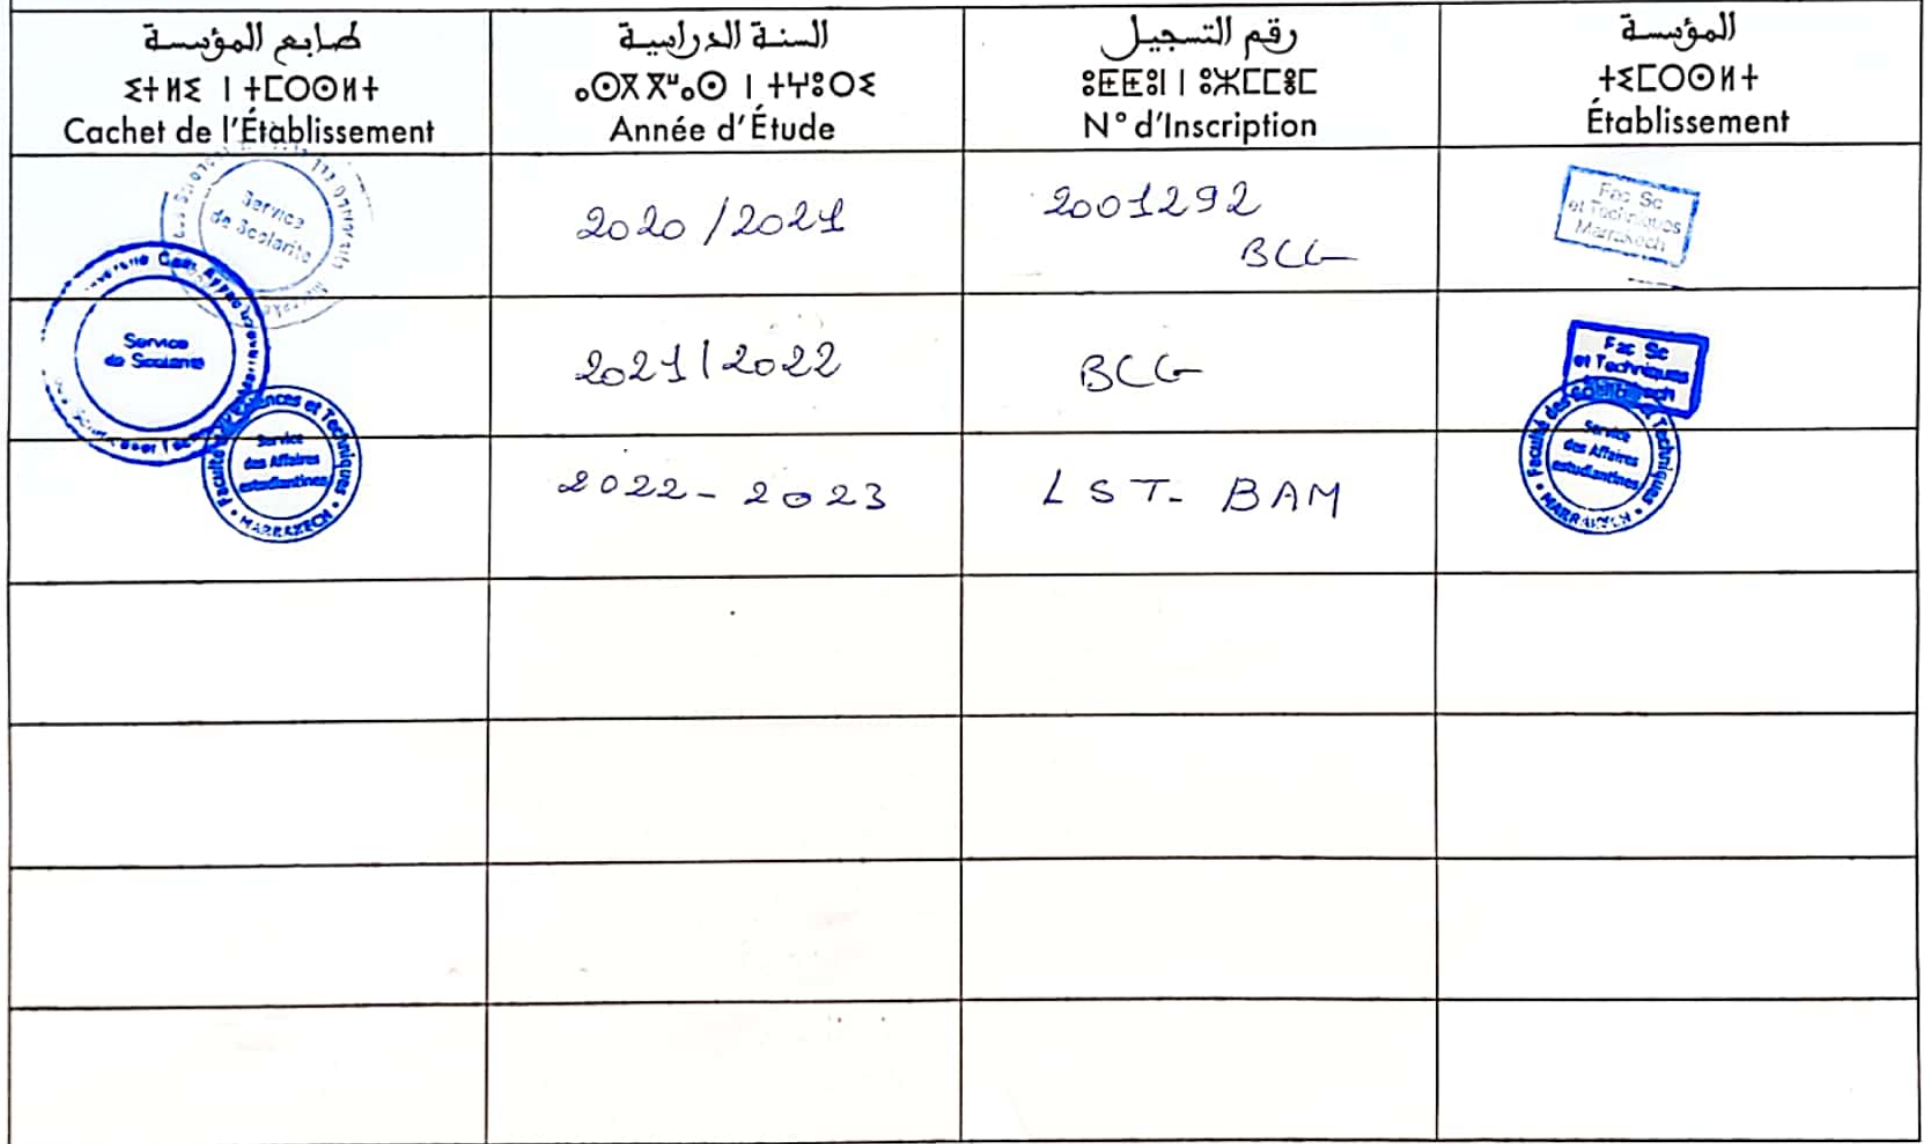 طابع المؤسسة
ⵉⵜⵍⵉ ⵏ ⵜⵎⵙⵙⵍⵜ
Cachet de l'Établissement
السنة الدراسية
ⴰⵙⴳⴳⵯⴰⵙ ⵏ ⵜⵖⵓⵔⵉ
Année d'Étude
رقم التسجيل
ⵓⵟⵟⵓⵏ ⵏ ⵓⵣⵎⵎⴻⵎ
N° d'Inscription
المؤسسة
ⵜⵉⵎⵔⵙⵍⵜ
Établissement
Service
de Scolarité
2020/2021
2001292
BCG
Fac Sc
et Techniques
Marrakech
Service
de Scolarité
2021/2022
BCG
Fac Sc
et Techniques
Sciences et Techniques
Service
des Affaires
estudiantines
MARRAKECH
2022-2023
LST- BAM
Faculté des Techniques
Service
des Affaires
estudiantines
MARRAKECH